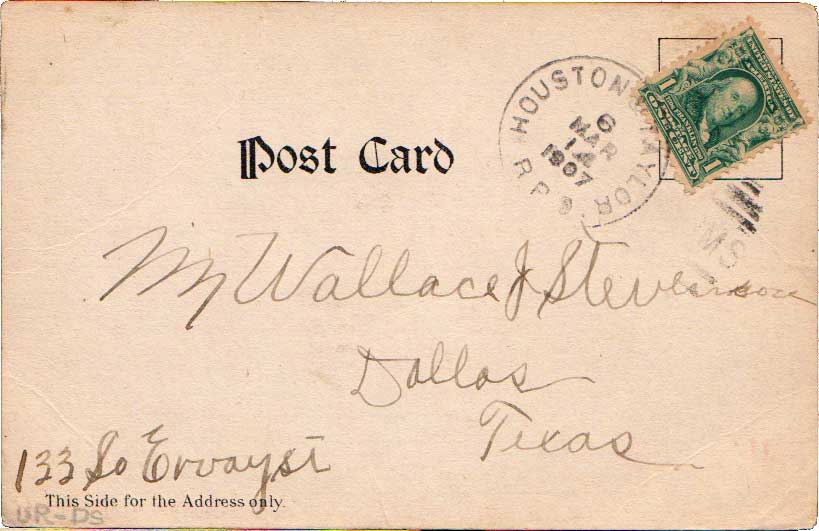 Post Card
HOUSTON & TAYLOR
6
MAR
14
1907
R.P.O.
1
ONE CENT
RMS
Mr Wallace J Stevenson
Dallas
Texas
133 So Ervay st
This Side for the Address only.
UR-DS